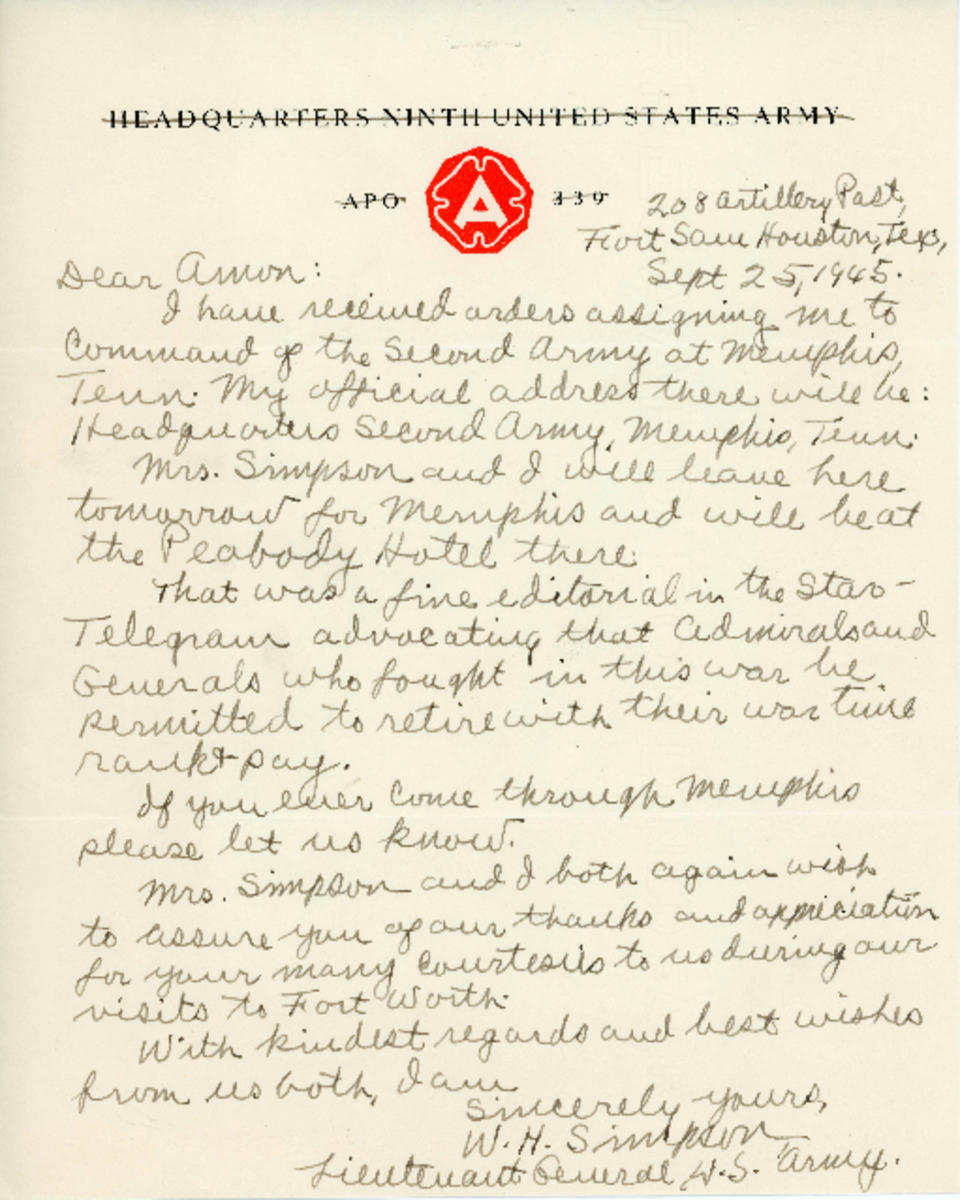 HEADQUARTERS NINTH UNITED STATES ARMY
APO A 339
208 Artillery Post,
Fort Sam Houston, Tex,
Sept 25, 1945.
Dear Amon:
I have received orders assigning me to
Command of the Second Army at Memphis,
Tenn. My official address there will be:
Headquarters Second Army, Memphis, Tenn.
Mrs. Simpson and I will leave here
tomorrow for Memphis and will be at
the Peabody Hotel there.
That was a fine editorial in the Star-
Telegram advocating that Admirals and
Generals who fought in this war be
permitted to retire with their war time
rank & pay.
If you ever come through Memphis
please let us know.
Mrs. Simpson and I both again wish
to assure you of our thanks and appreciation
for your many courtesies to us during our
visits to Fort Worth.
With kindest regards and best wishes
from us both, I am
Sincerely yours,
W. H. Simpson
Lieutenant General, U.S. Army.